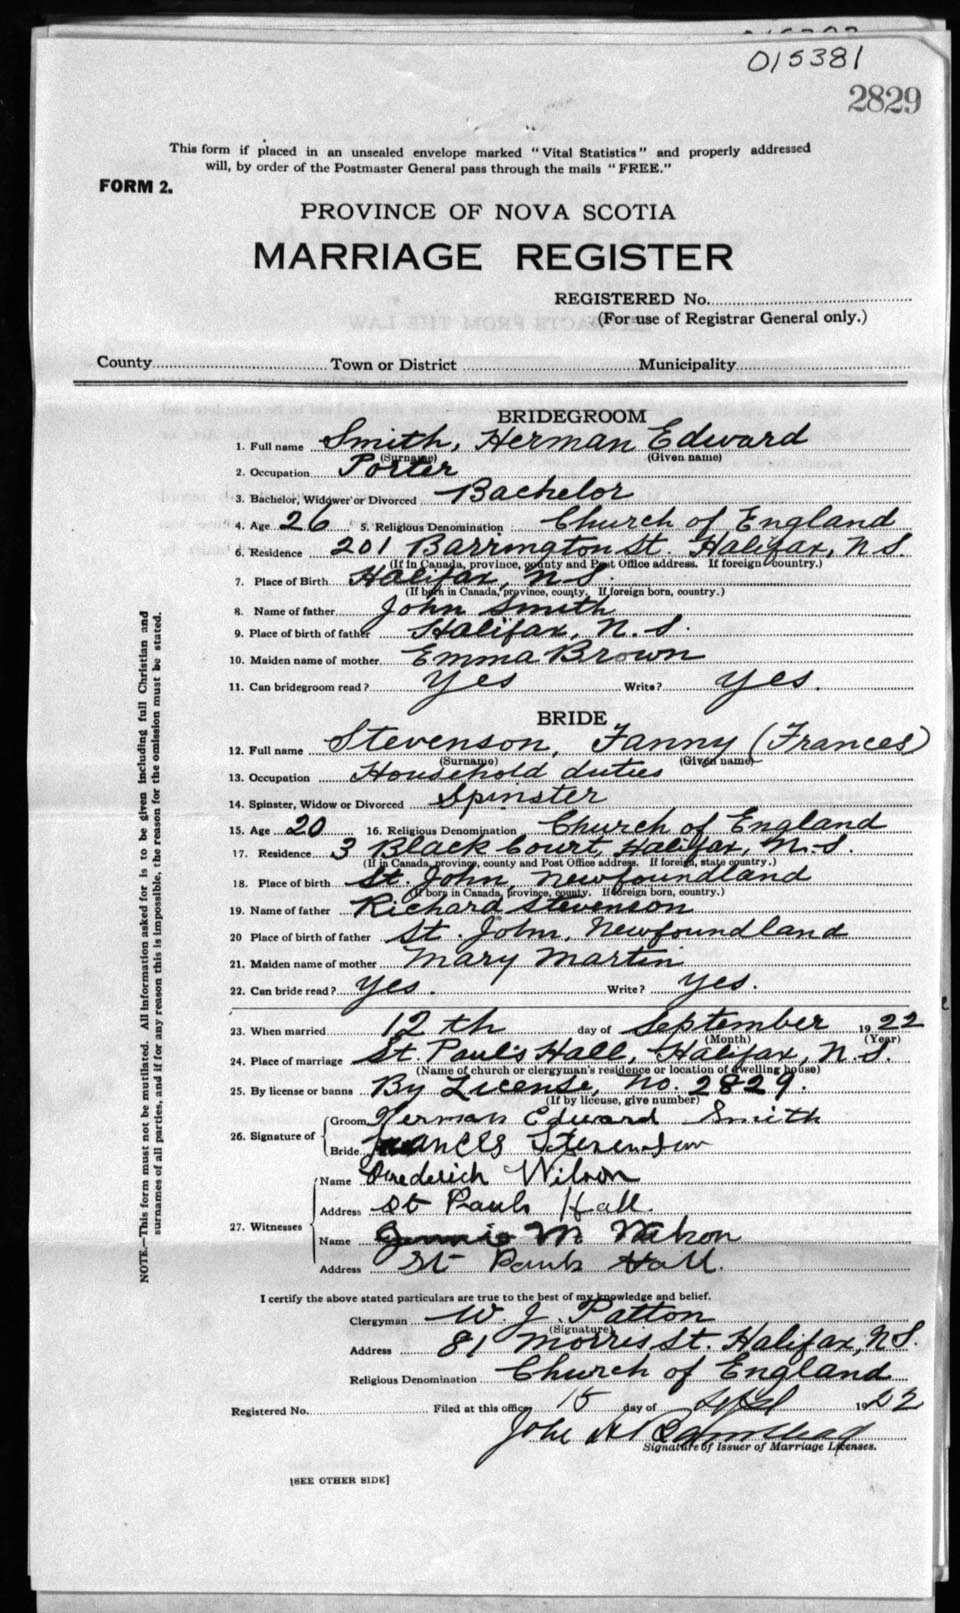 015381
2829
This form if placed in an unsealed envelope marked "Vital Statistics" and properly addressed
will, by order of the Postmaster General pass through the mails "FREE."
FORM 2.
PROVINCE OF NOVA SCOTIA
MARRIAGE REGISTER
REGISTERED No.
(For use of Registrar General only.)
County Town or District Municipality
BRIDEGROOM
1. Full name Smith, Herman Edward
(Surname) (Given name)
2. Occupation Porter
3. Bachelor, Widower or Divorced Bachelor
4. Age 26 5. Religious Denomination Church of England
6. Residence 201 Barrington St. Halifax, N.S.
(If in Canada, province, county and Post Office address. If foreign country.)
7. Place of Birth Halifax, N.S.
(If born in Canada, province, county. If foreign born, country.)
8. Name of father John Smith
9. Place of birth of father Halifax, N.S.
10. Maiden name of mother Emma Brown
11. Can bridegroom read? Yes Write? Yes.
BRIDE
12. Full name Stevenson, Fanny (Frances)
(Surname) (Given name)
13. Occupation Household duties
14. Spinster, Widow or Divorced Spinster
15. Age 20 16. Religious Denomination Church of England
17. Residence 3 Black Court, Halifax, N.S.
(If in Canada, province, county and Post Office address. If foreign, state country.)
18. Place of birth St. John, Newfoundland
(If born in Canada, province, county. If foreign born, country.)
19. Name of father Richard Stevenson
20 Place of birth of father St. John, Newfoundland
21. Maiden name of mother Mary Martin
22. Can bride read? Yes. Write? Yes.
23. When married 12th day of September 1922
(Month) (Year)
24. Place of marriage St. Paul's Hall, Halifax, N.S.
(Name of church or clergyman's residence or location of dwelling house)
25. By license or banns By License, No. 2829.
(If by license, give number)
26. Signature of
Groom Herman Edward Smith
Bride Frances Stevenson
27. Witnesses
Name Frederick Wilson
Address St Pauls Hall.
Name Jennie M.
Address St Pauls Hall.
I certify the above stated particulars are true to the best of my knowledge and belief.
Clergyman W. J. Patton
(Signature)
Address 81 Morris St. Halifax, N.S.
Religious Denomination Church of England
Registered No. Filed at this office 15 day of 1922
John
Signature of Issuer of Marriage Licenses.
[SEE OTHER SIDE]
NOTE.—This form must not be mutilated. All information asked for is to be given including full Christian and
surnames of all parties, and if for any reason this is impossible, the reason for the omission must be stated.